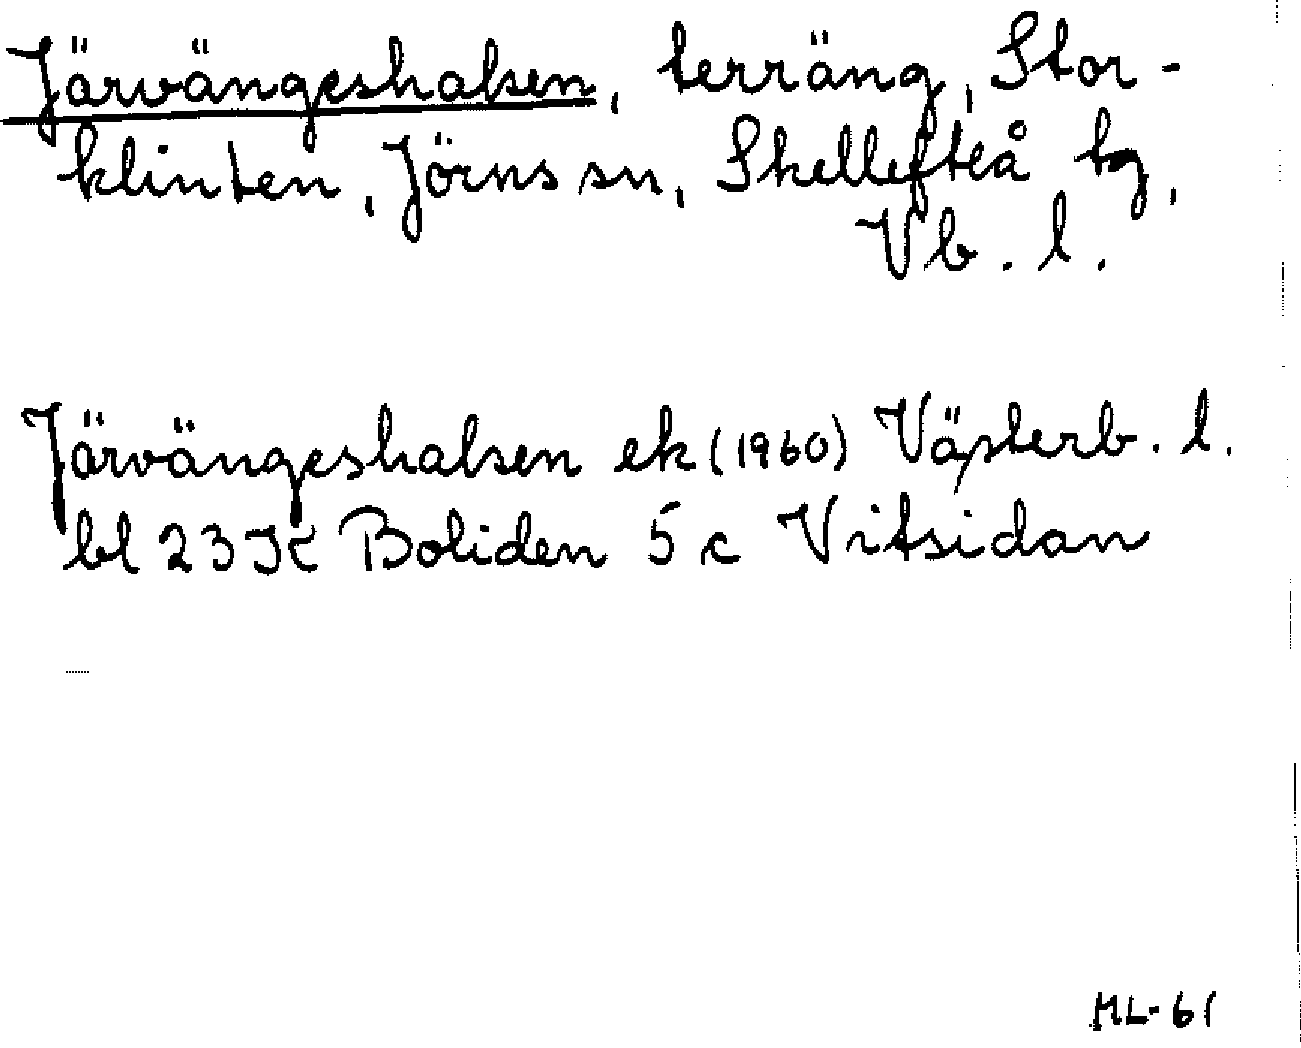 Järvängeshalsen, terräng, Stor-
klinten, Jörns sn, Skellefteå tg,
Vb. l.
Järvängeshalsen ek (1960) Västerb. l.
bl 23 K Boliden 5 c Vitsidan
ML-61